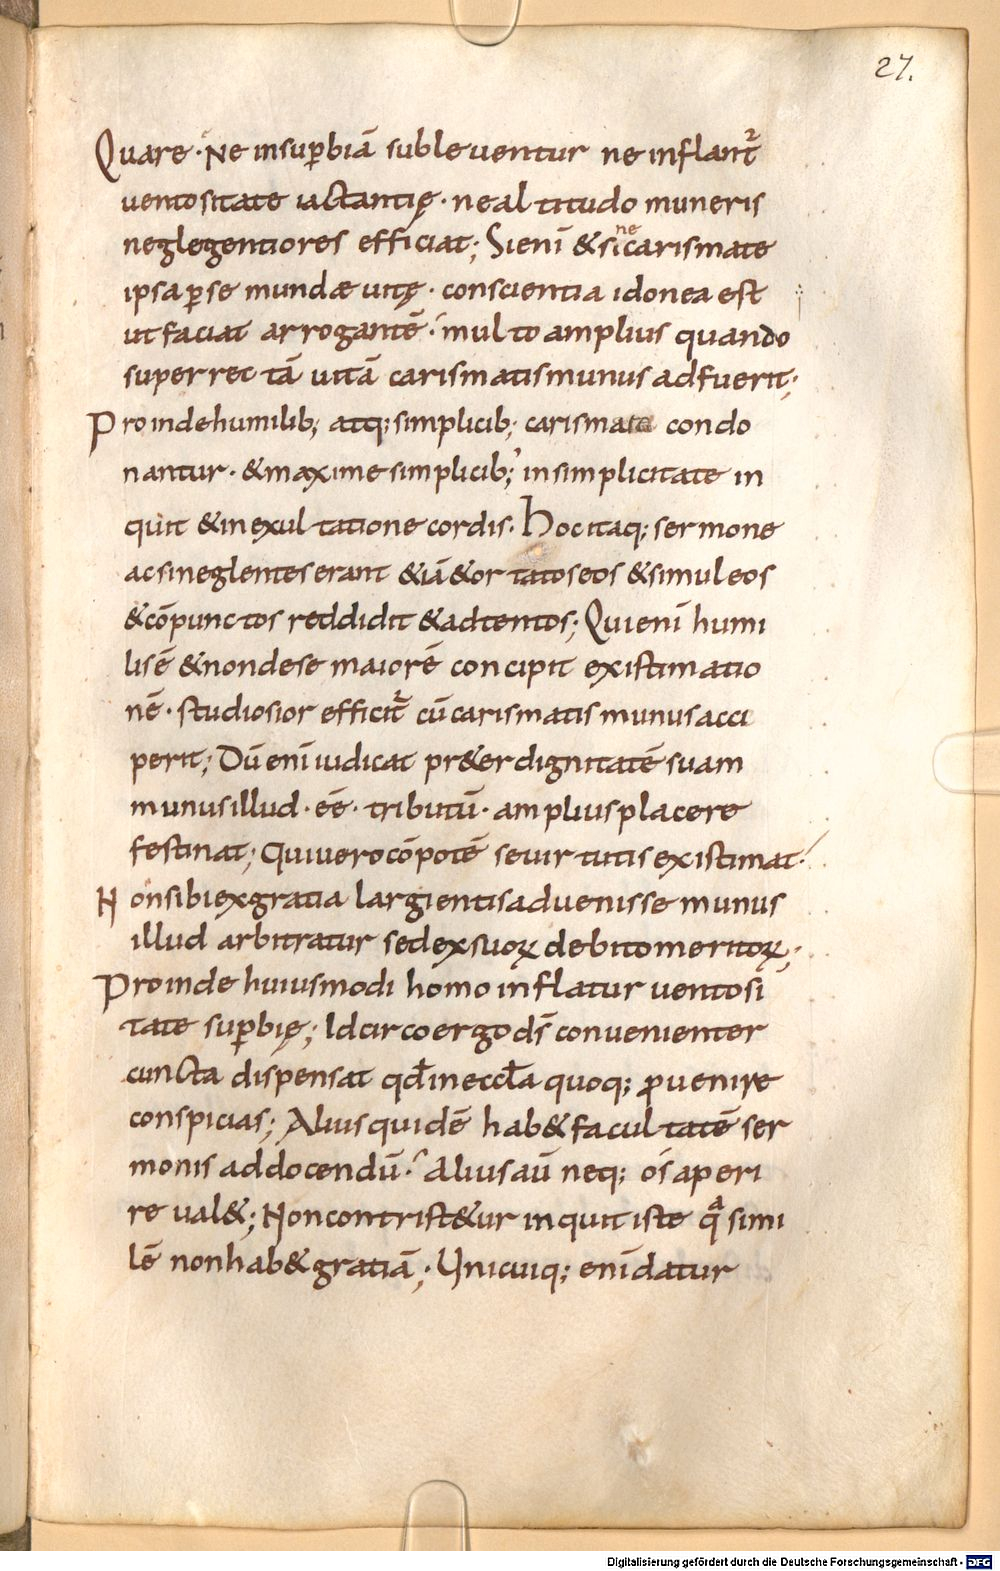 27.
Quare · Ne insuꝑbiā subleuentur ne inflantᷣ
uentositate iactantię · ne altitudo muneris
neglegentiores efficiat; Si enī & si ne carismate
ipsa ꝑ se mundæ uitę · conscientia idonea est
ut faciat arrogantē · multo amplius quando
super rectā uitā carismatis munus adfuerit;
Proinde humilib; atq; simplicib; carismata condo
nantur · & maxime simplicib; in simplicitate in
quit & in exultatione cordis · Hoc itaq; sermone
ac si neglentes erant & iā &ortatos eos & simul eos
& cōpunctos reddidit & adtentos; Qui enī humi
lis ē & non de se maiorē concipit existimatio
nē · studiosior efficitᷣ cū carismatis munus acci
perit; Dū enī iudicat pr&er dignitatē suam
munus illud · eē · tributū · amplius placere
festinat; Qui uero cōpotē se uirtutis existimat ·
Non sibi ex gratia largientis aduenisse munus
illud arbitratur sed ex suoꝝ debito meritoꝝ;
Proinde huiusmodi homo inflatur uentosi
tate suꝑbię; Idcirco ergo d̄s conuenienter
cuncta dispensat qđ in eccła quoq; ꝓuenire
conspicias; Alius quidē hab& facultatē ser
monis ad docendū · Alius aū neq; os aperi
re ual&; Non contrist&ur inquit iste qͣ simi
lē non hab& gratiā; Unicuiq; enī datur
Digitalisierung gefördert durch die Deutsche Forschungsgemeinschaft - DFG